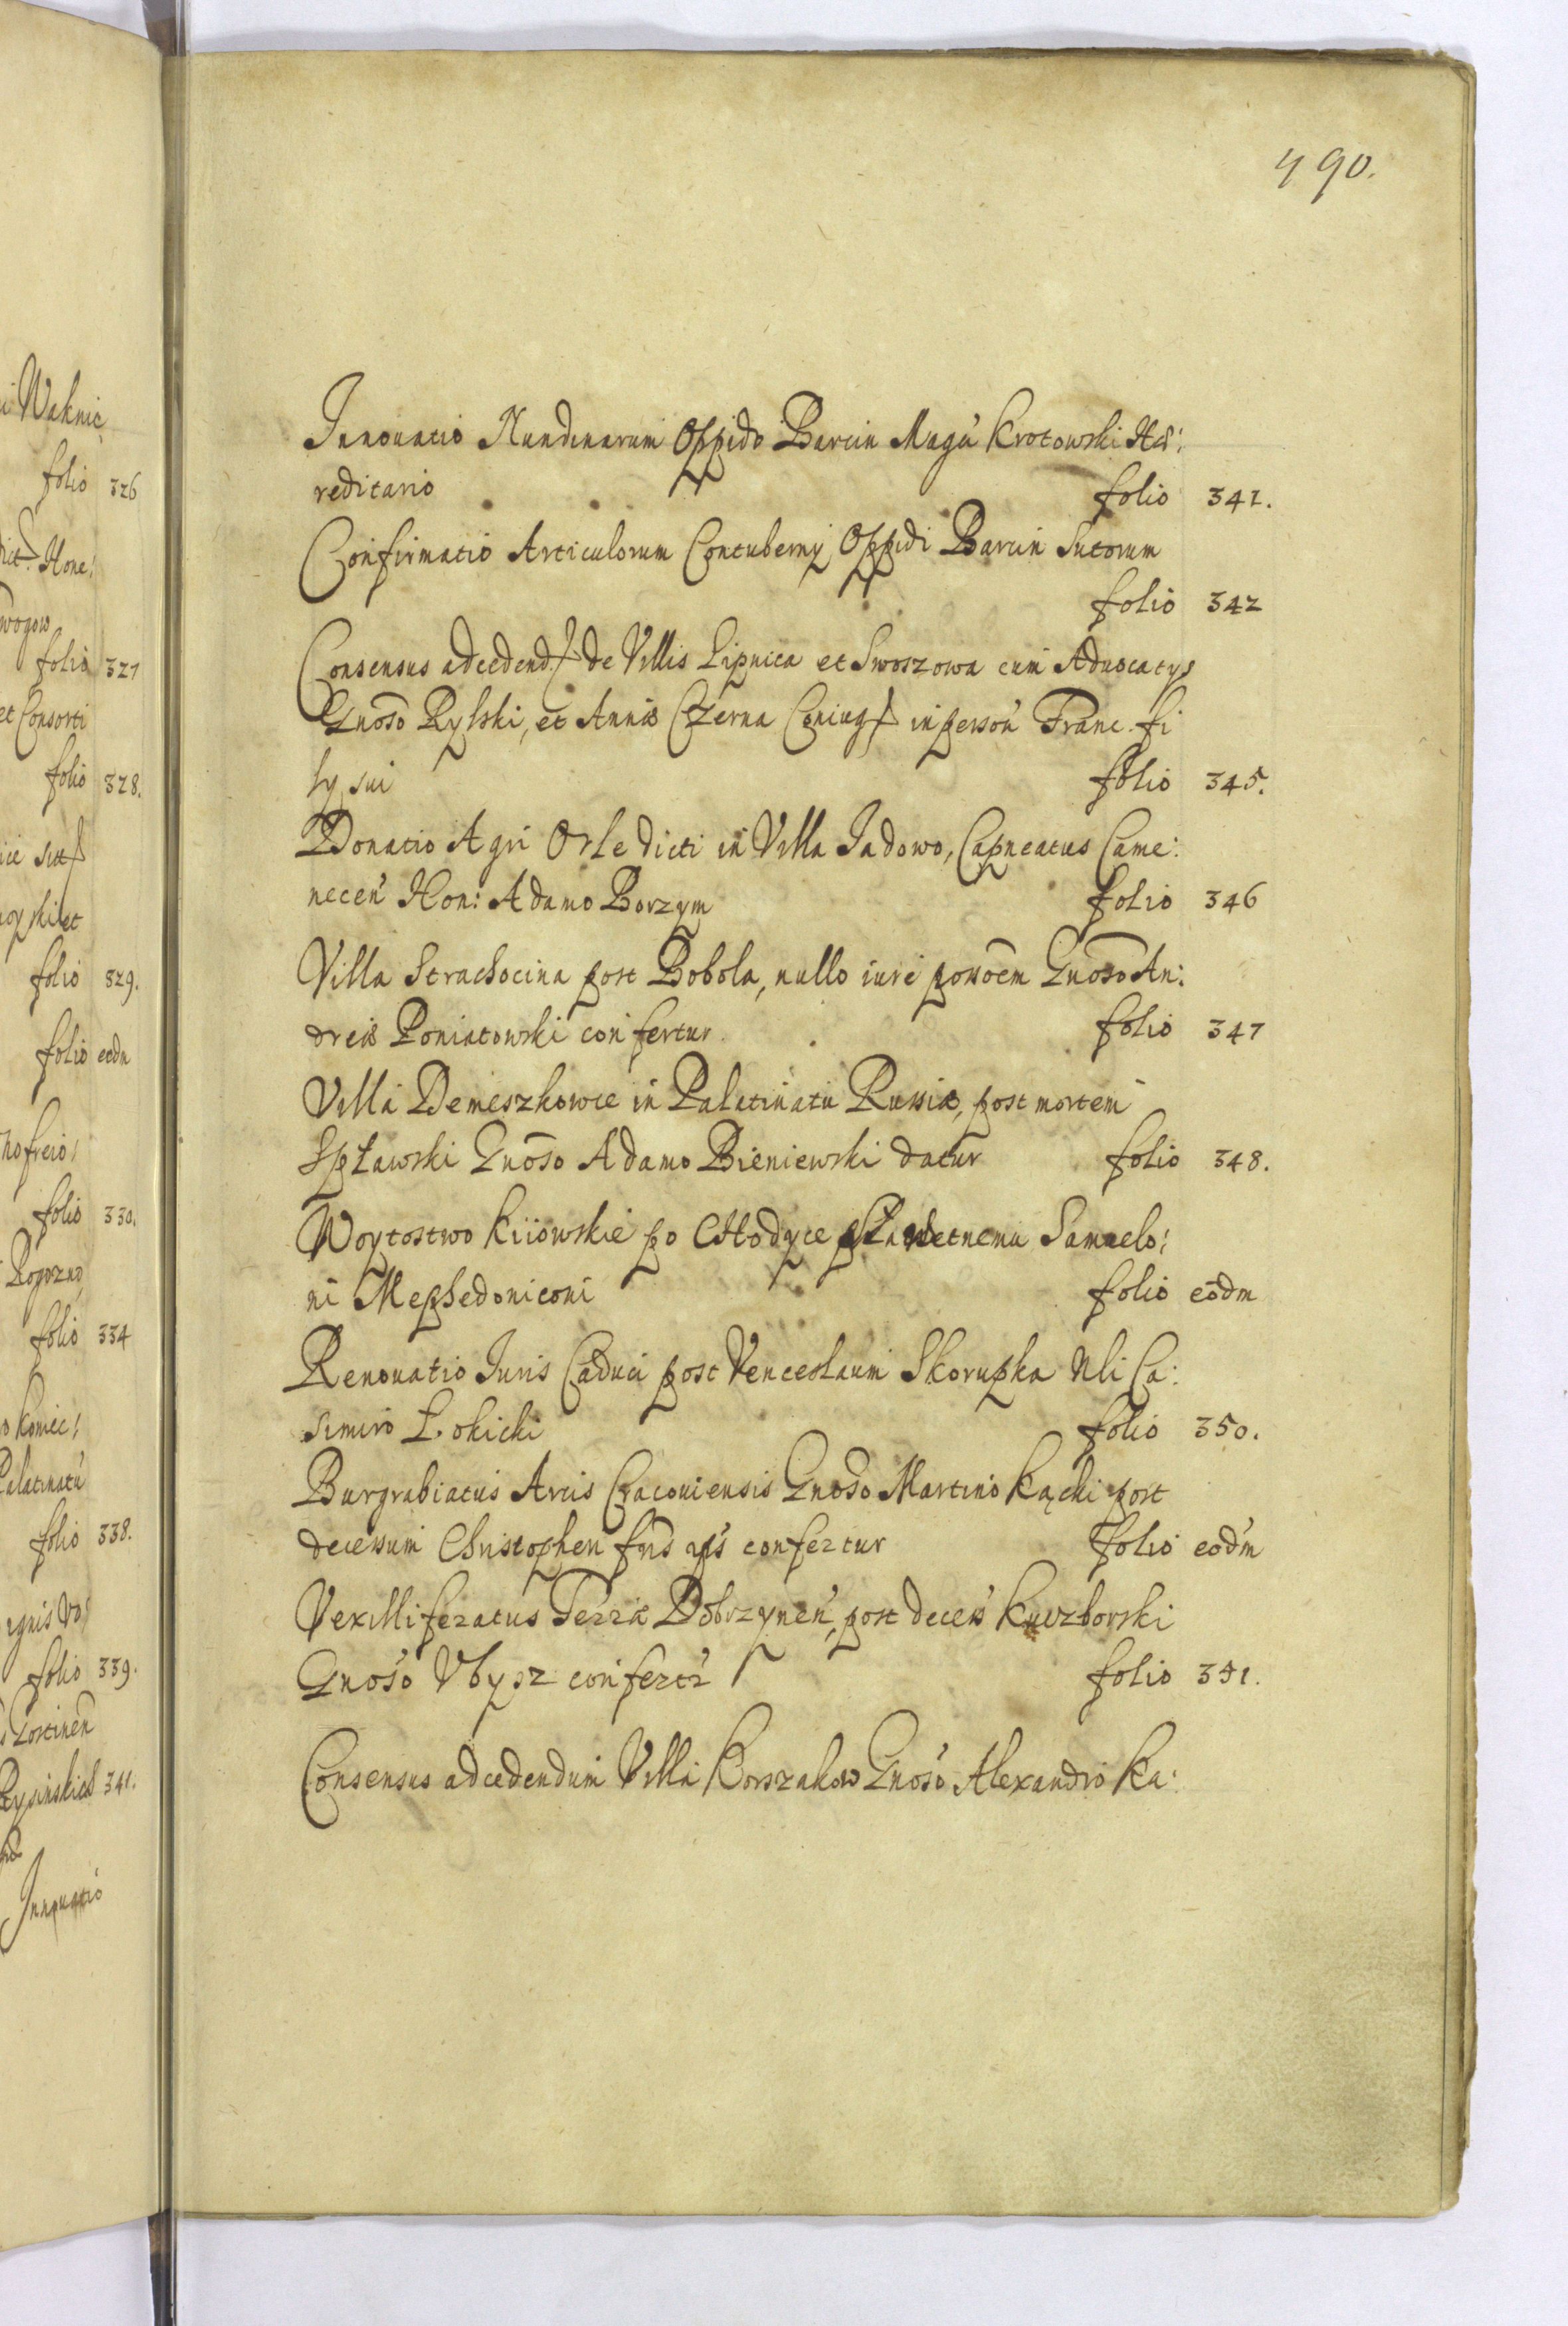 i Waknic
folio 326
Hone:
folio 327
et Consorti
folio 328.
folio 329.
folio eodm
folio 330.
folio 334
Palatinatu
folio 338.
folio 339.
Gostinen
341.
Innouatio
490.
Innouatio Nundinarum Oppido Barcin Magn̄ Krotowski Hæ:
reditario folio 341.
Confirmatio Articulorum Contubernÿ Oppidi Barcin Sutorum
folio 342
Consensus ad cedend de Villis Lipnica et Swoszowa cum Aduocatÿs
Gnōso Rylski, et Annæ Czerna Coniug in person̄ Franc. fi
lÿ sui folio 345.
Donatio Agri Orle dicti in Villa Jadowo, Capneatus Came:
necen̄ Hon: Adamo Borzym folio 346
Villa Strachocina post Bobola, nullo iure possōem Gnōso An:
dreæ Poniatowski confertur folio 347
Villa Demeszkowce in Palatinatu Russiæ, post mortem
Spławski Gnōso Adamo Bieniewski datur folio 348.
Woytostwo kiiowskie po Chodyce Sławetnemu Samuelo:
ni Mephedoniconi folio eōdm
Renouatio Iuris Caduci post Venceslaum Skorupka Nli Ca:
simiro Łokicki folio 350.
Burgrabiatus Arcis Cracouiensis Gnōso Martino Kącki post
decessum Christopheri confertur folio eōdm
Vexilliferatus Terræ Dobrzynen̄, post decess Kuczborski
Gnōso Vbysz confertr folio 351.
Consensus ad cedendum Villa Korszakow Gnōso Alexandro Ka: